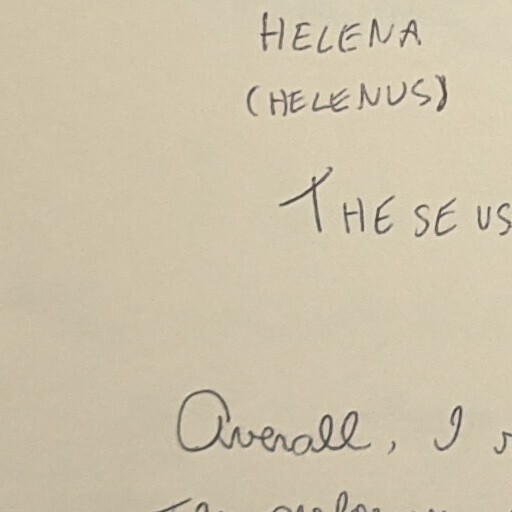 HELENA
(HELENUS)
THESEUS
Overall, I